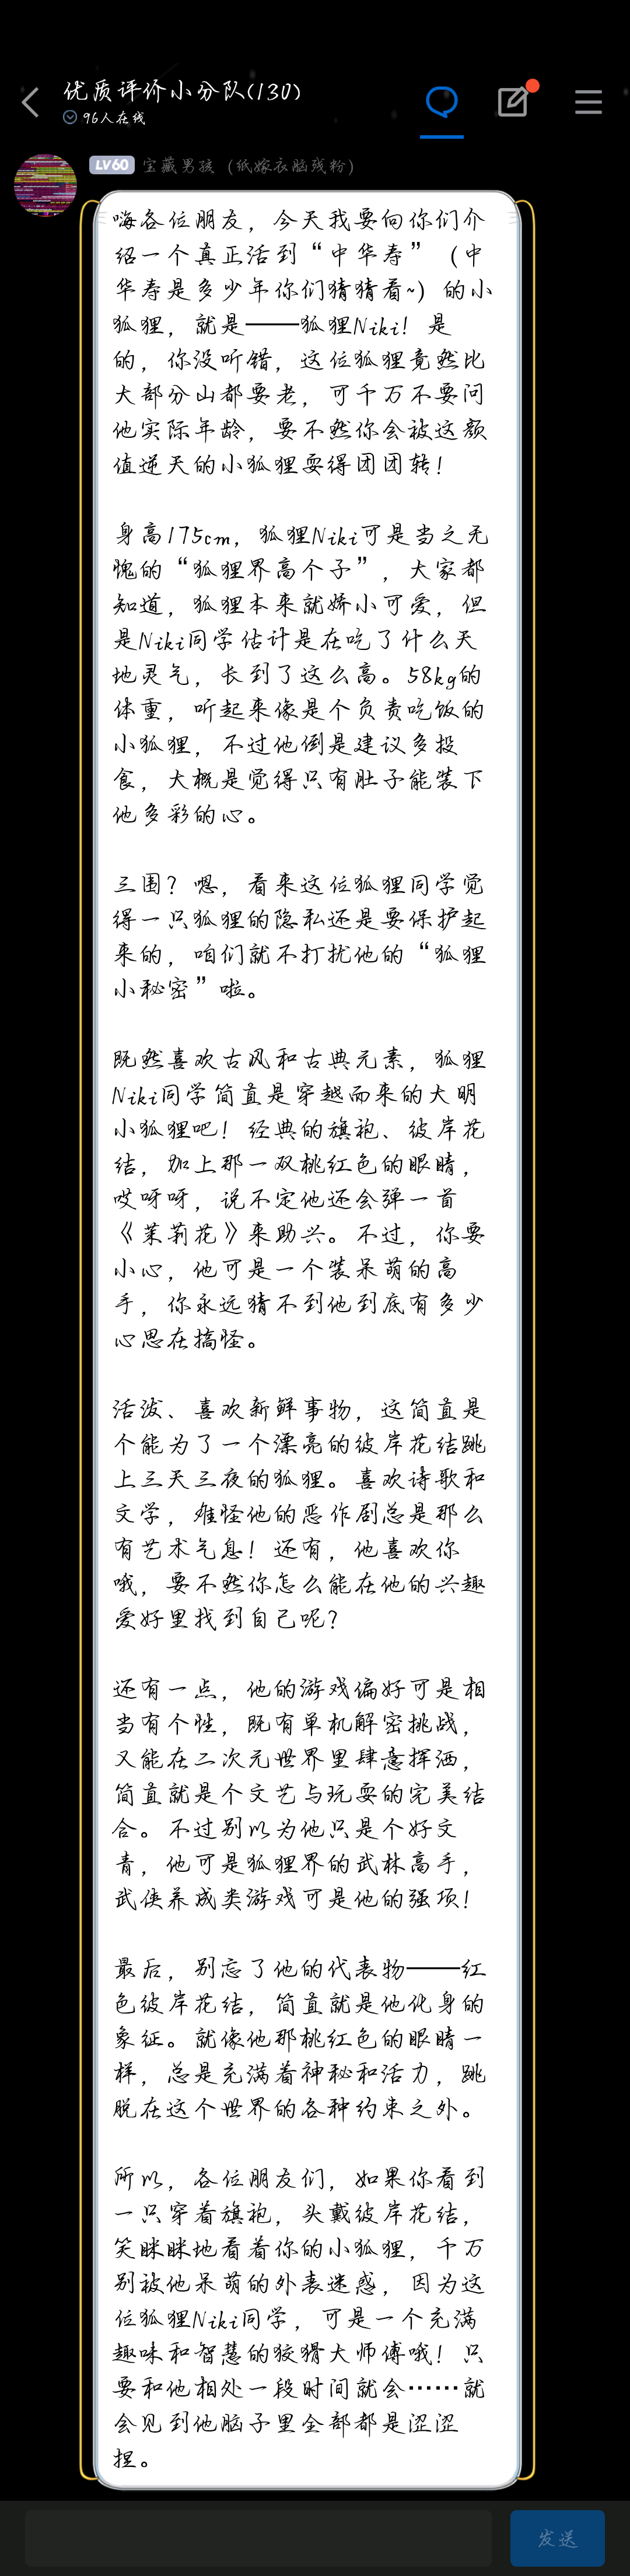 优质评价小分队(130)
96人在线
LV60 宝藏男孩（纸嫁衣脑残粉）
嗨各位朋友，今天我要向你们介
绍一个真正活到“中华寿”（中
华寿是多少年你们猜猜看~）的小
狐狸，就是——狐狸Niki！是
的，你没听错，这位狐狸竟然比
大部分山都要老，可千万不要问
他实际年龄，要不然你会被这颜
值逆天的小狐狸耍得团团转！
身高175cm，狐狸Niki可是当之无
愧的“狐狸界高个子”，大家都
知道，狐狸本来就娇小可爱，但
是Niki同学估计是在吃了什么天
地灵气，长到了这么高。58kg的
体重，听起来像是个负责吃饭的
小狐狸，不过他倒是建议多投
食，大概是觉得只有肚子能装下
他多彩的心。
三围？嗯，看来这位狐狸同学觉
得一只狐狸的隐私还是要保护起
来的，咱们就不打扰他的“狐狸
小秘密”啦。
既然喜欢古风和古典元素，狐狸
Niki同学简直是穿越而来的大明
小狐狸吧！经典的旗袍、彼岸花
结，加上那一双桃红色的眼睛，
哎呀呀，说不定他还会弹一首
《茉莉花》来助兴。不过，你要
小心，他可是一个装呆萌的高
手，你永远猜不到他到底有多少
心思在搞怪。
活泼、喜欢新鲜事物，这简直是
个能为了一个漂亮的彼岸花结跳
上三天三夜的狐狸。喜欢诗歌和
文学，难怪他的恶作剧总是那么
有艺术气息！还有，他喜欢你
哦，要不然你怎么能在他的兴趣
爱好里找到自己呢？
还有一点，他的游戏偏好可是相
当有个性，既有单机解密挑战，
又能在二次元世界里肆意挥洒，
简直就是个文艺与玩耍的完美结
合。不过别以为他只是个好文
青，他可是狐狸界的武林高手，
武侠养成类游戏可是他的强项！
最后，别忘了他的代表物——红
色彼岸花结，简直就是他化身的
象征。就像他那桃红色的眼睛一
样，总是充满着神秘和活力，跳
脱在这个世界的各种约束之外。
所以，各位朋友们，如果你看到
一只穿着旗袍，头戴彼岸花结，
笑眯眯地看着你的小狐狸，千万
别被他呆萌的外表迷惑，因为这
位狐狸Niki同学，可是一个充满
趣味和智慧的狡猾大师傅哦！只
要和他相处一段时间就会……就
会见到他脑子里全部都是涩涩
捏。
发送